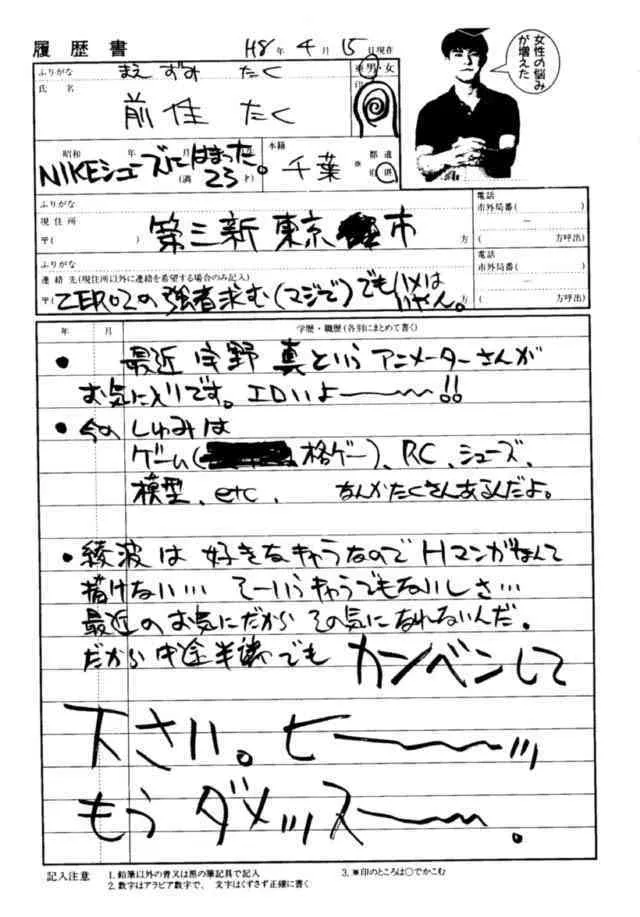 履歴書 H8年4月15日現在
女性の悩み
が増えた
ふりがな まえずみ たく ※男・女
氏名 前住 たく 印
昭和 年 月
NIKEシューズにはまった。
(満 23才)
本籍 千葉 ※都道府県
ふりがな
現住所 第三新東京市
〒( ) 方
電話
市外局番( )
ー
( 方呼出)
ふりがな
連絡先(現住所以外に連絡を希望する場合のみ記入)
〒( ZERO2の強者求む(マジで)でもハメはいやん。
電話
市外局番( )
ー
( 方呼出)
年 月 学歴・職歴(各別にまとめて書く)
• 最近 宇野 真というアニメーターさんが
お気に入りです。エロいよ———〜〜!!
• 今のしゅみは
ゲーム( 格ゲー)、RC、シューズ、
模型、etc、 なんかたくさんあるんだよ。
• 綾波は好きなキャラなのでHマンガなんて
描けない… そーいうキャラでもないしさ…
最近のお気にだから その気になれないんだ。
だから中途半端でも カンベンして
下さい。ヒ———〜〜ッ
もう ダメッス——〜。
記入注意 1.鉛筆以外の青又は黒の筆記具で記入 3.※印のところは○でかこむ
2.数字はアラビア数字で、文字はくずさず正確に書く